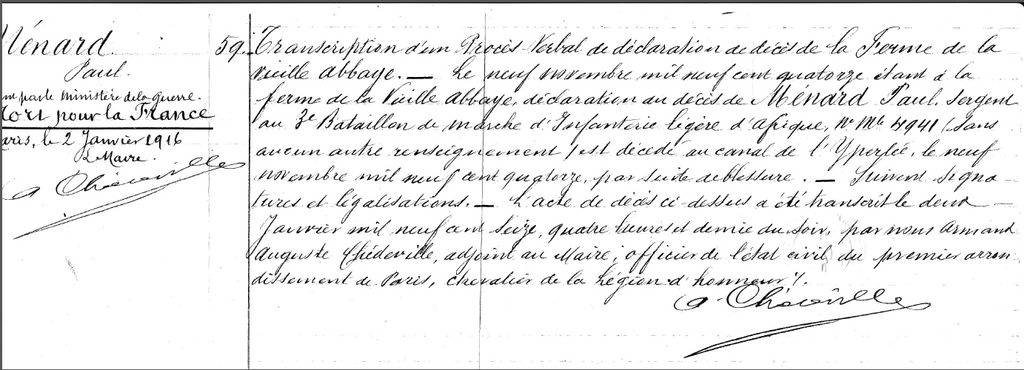 Ménard
Paul.
par le Ministère de la guerre.
Mort pour la France
Paris, le 2 Janvier 1916
Le Maire.
A Chédeville
59. Transcription d'un Procès Verbal de déclaration de décès de la Ferme de la
vieille abbaye. — Le neuf novembre mil neuf cent quatorze étant à la
ferme de la Vieille Abbaye, déclaration du décès de Ménard Paul, Sergent
au 3e Bataillon de marche d'Infanterie légère d'Afrique, No Mle 4941 (Sans
aucun autre renseignement) est décédé au canal de l'Yperlée, le neuf
novembre mil neuf cent quatorze, par suite de blessure. — Suivent signa-
tures et légalisations. — L'acte de décès ci dessus a été transcrit le deux
Janvier mil neuf cent seize, quatre heures et demie du Soir, par nous Armand
Auguste Chédeville, adjoint au Maire, officier de l'état civil du premier arron
dissement de Paris, chevalier de la Légion d'honneur ./.
A Chédeville